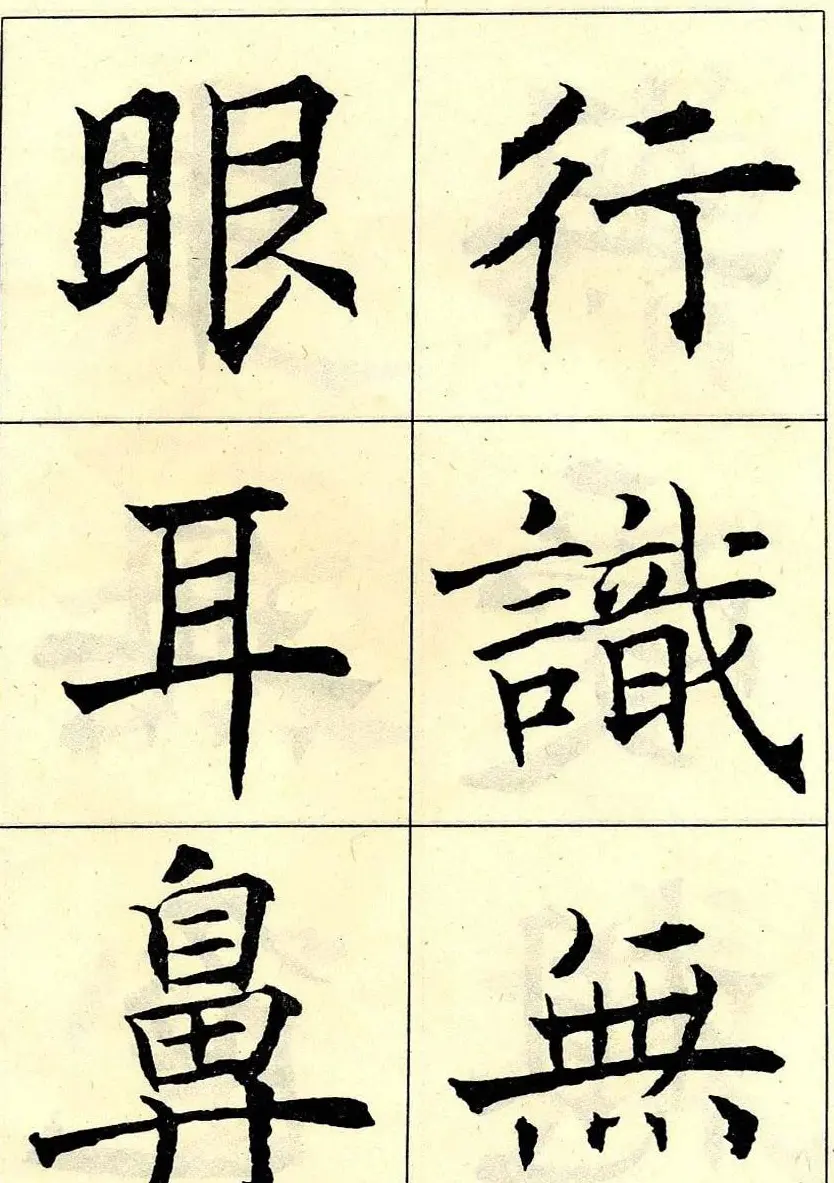 行識無
眼耳鼻